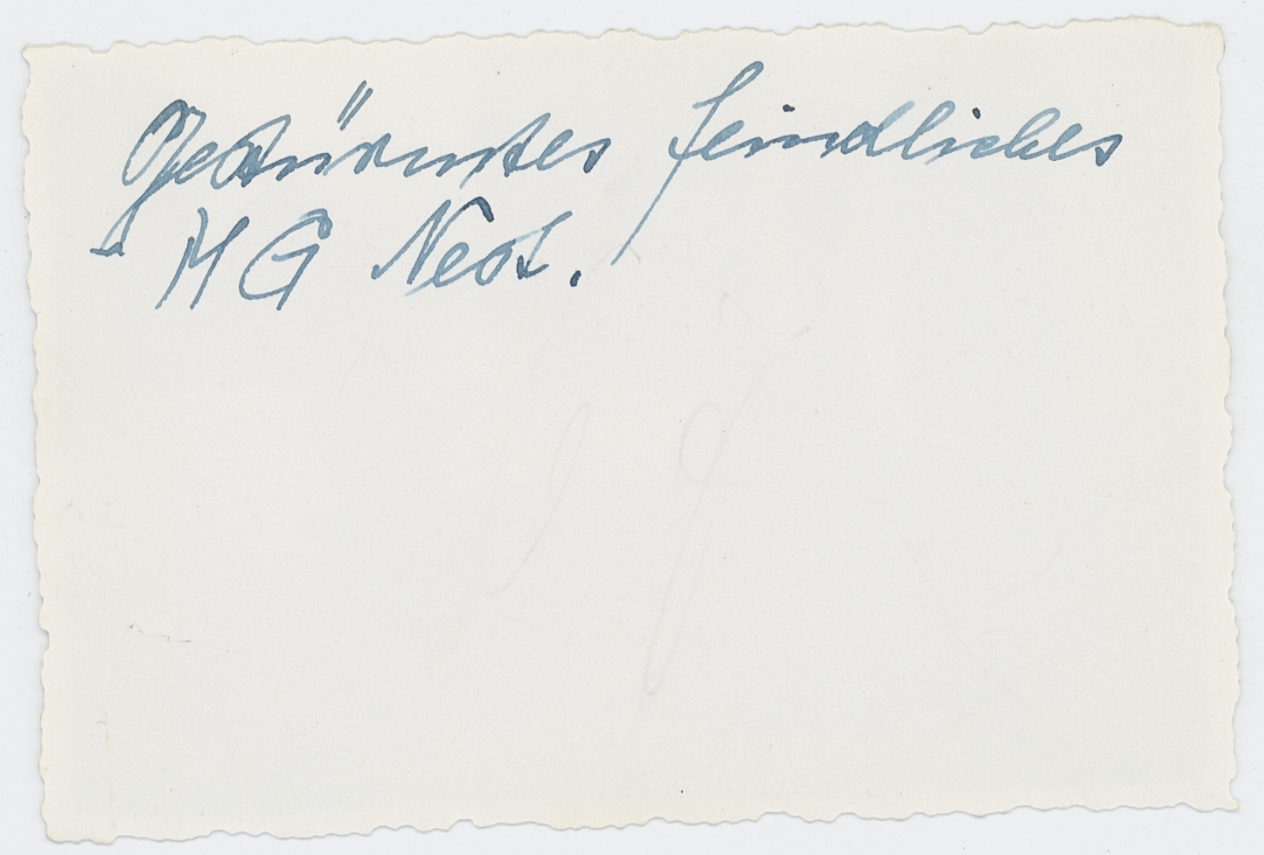 Gestürmtes feindliches
MG Nest.